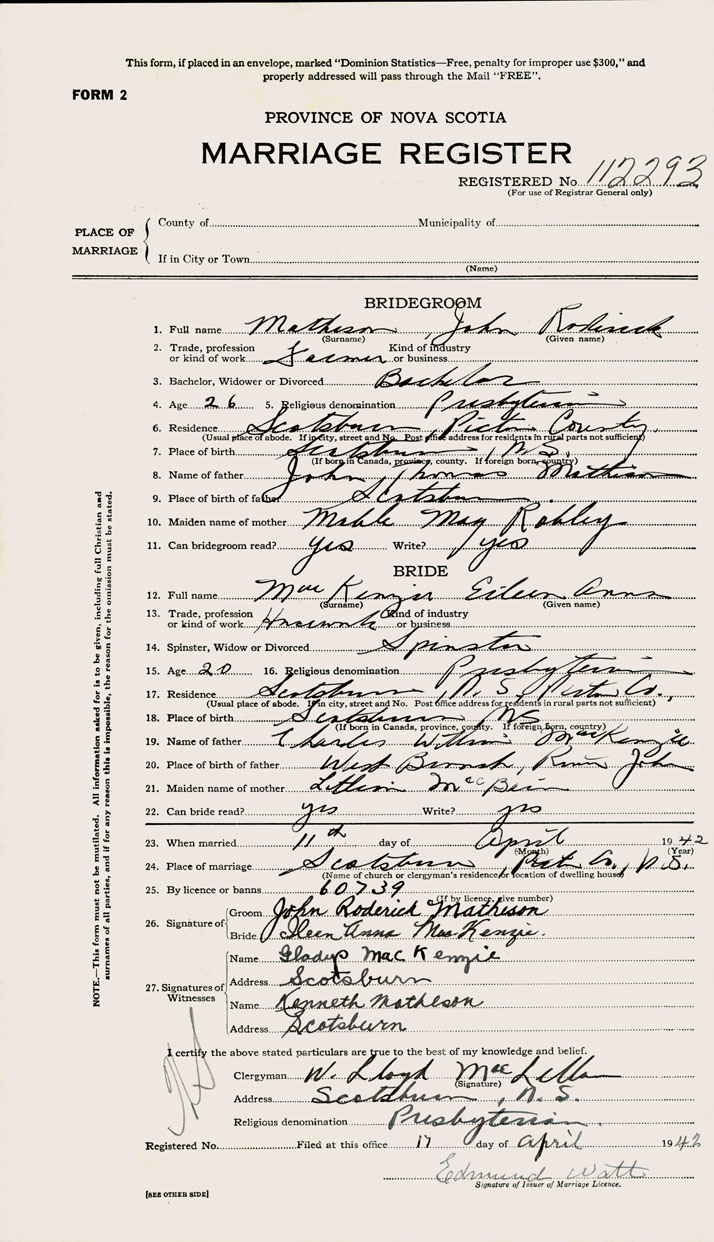 This form, if placed in an envelope, marked "Dominion Statistics—Free, penalty for improper use $300," and
properly addressed will pass through the Mail "FREE".
FORM 2
PROVINCE OF NOVA SCOTIA
MARRIAGE REGISTER
REGISTERED No. 112293
(For use of Registrar General only)
PLACE OF MARRIAGE
County of Municipality of
If in City or Town
(Name)
BRIDEGROOM
1. Full name Matheson, John Roderick
(Surname) (Given name)
2. Trade, profession or kind of work Farmer Kind of industry or business
3. Bachelor, Widower or Divorced Bachelor
4. Age 26 5. Religious denomination Presbyterian
6. Residence Scotsburn, Pictou County
(Usual place of abode. If in city, street and No. Post office address for residents in rural parts not sufficient)
7. Place of birth Scotsburn, N.S.
(If born in Canada, province, county. If foreign born, country)
8. Name of father John Thomas Matheson
9. Place of birth of father Scotsburn
10. Maiden name of mother Mable May Robley
11. Can bridegroom read? yes Write? yes
BRIDE
12. Full name MacKenzie Eileen Anna
(Surname) (Given name)
13. Trade, profession or kind of work Housework Kind of industry or business
14. Spinster, Widow or Divorced Spinster
15. Age 20 16. Religious denomination Presbyterian
17. Residence Scotsburn, N.S., Pictou Co.,
(Usual place of abode. If in city, street and No. Post office address for residents in rural parts not sufficient)
18. Place of birth Scotsburn, NS
(If born in Canada, province, county. If foreign born, country)
19. Name of father Charles William MacKenzie
20. Place of birth of father West Branch, River John
21. Maiden name of mother McBean
22. Can bride read? yes Write? yes
23. When married 11th day of April 1942
(Month) (Year)
24. Place of marriage Scotsburn, Pictou Co., N.S.
(Name of church or clergyman's residence, or location of dwelling house)
25. By licence or banns 60739
(If by licence, give number)
26. Signature of
Groom John Roderick Matheson
Bride Ileen Anna MacKenzie.
27. Signatures of Witnesses
Name Gladys MacKenzie
Address Scotsburn
Name Kenneth Matheson
Address Scotsburn
I certify the above stated particulars are true to the best of my knowledge and belief.
Clergyman W. Lloyd MacLellan
(Signature)
Address Scotsburn, N.S.
Religious denomination Presbyterian.
Registered No. Filed at this office 17 day of April 1942
Edmund Watt
Signature of Issuer of Marriage Licence.
[SEE OTHER SIDE]
NOTE.—This form must not be mutilated. All information asked for is to be given, including full Christian and
surnames of all parties, and if for any reason this is impossible, the reason for the omission must be stated.